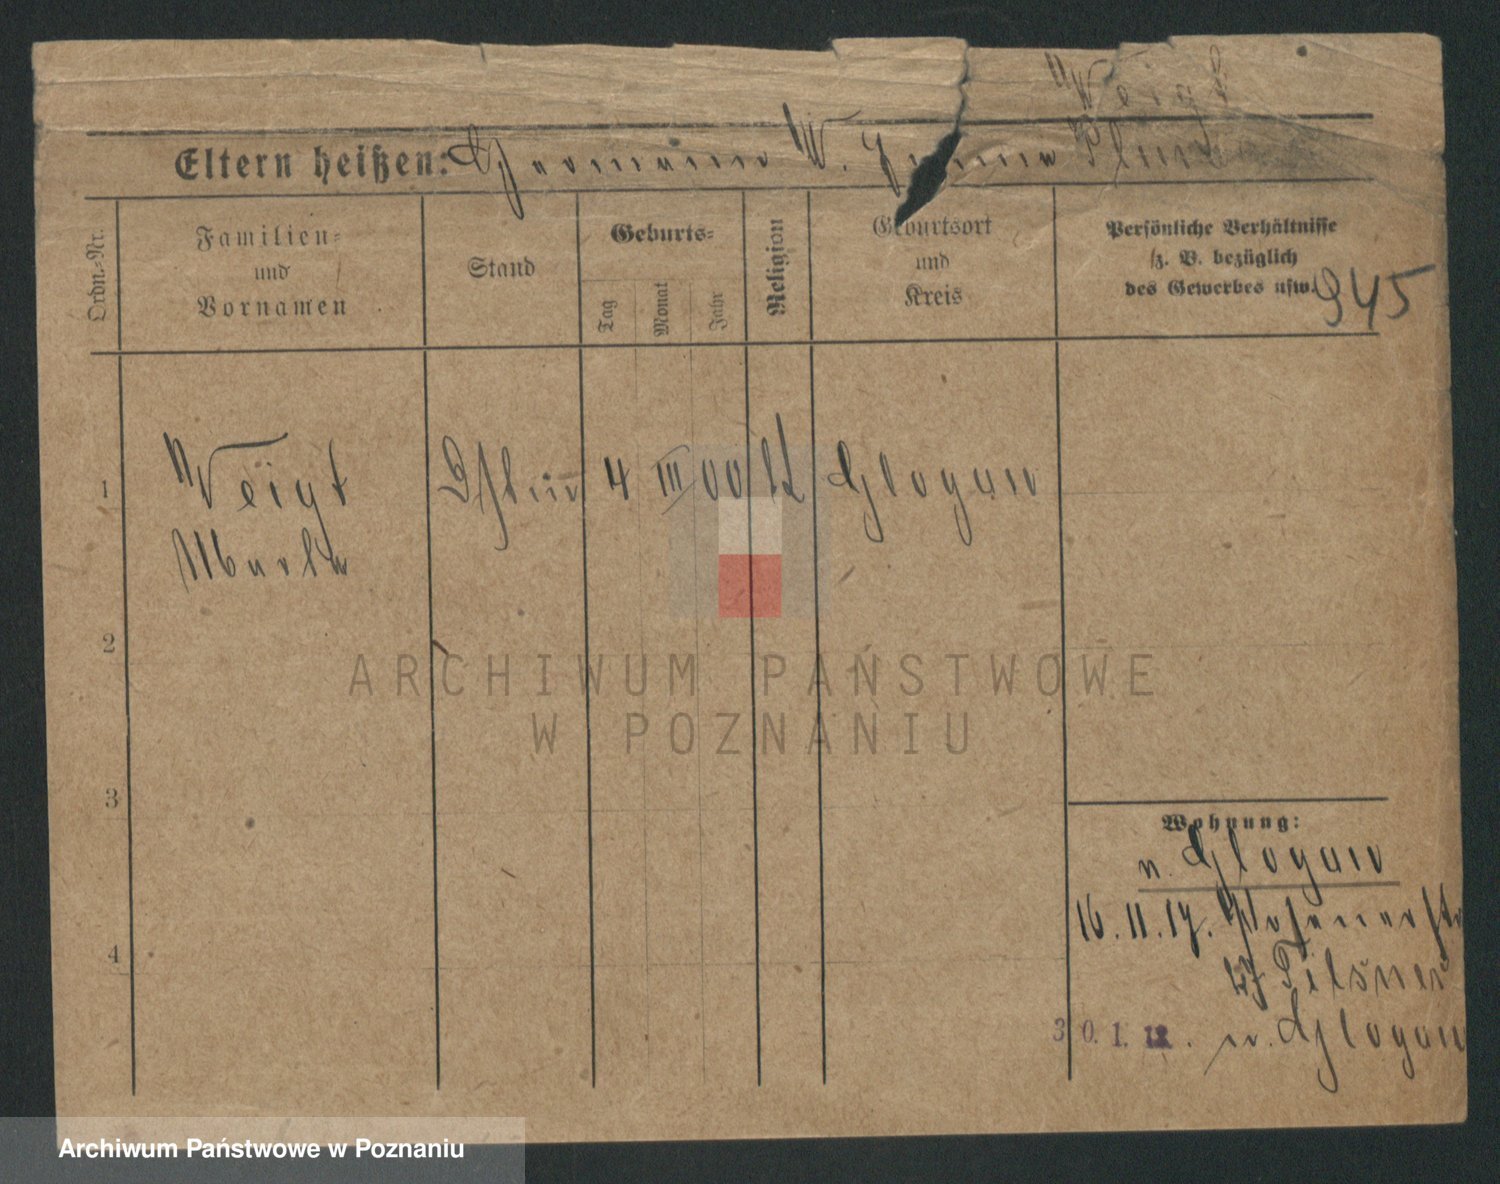 Veigt
Eltern heißen: Hermann V. Emma
Ordn.-Nr.
Familien-
und
Vornamen
Stand
Geburts-
Tag
Monat
Jahr
Religion
Geburtsort
und
Kreis
Persönliche Verhältnisse
(z. B. bezüglich
des Gewerbes usw.
945
1 Veigt 4 III 00 Glogau
Martha
2
3
4
Wohnung:
n. Glogau
16.11.17. Posenerstr
b/ Tilsner
30.1.18. n. Glogau
ARCHIWUM PAŃSTWOWE
W POZNANIU
Archiwum Państwowe w Poznaniu